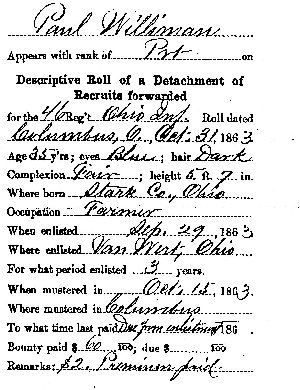 Paul Williman
Appears with rank of Prt on
Descriptive Roll of a Detachment of
Recruits forwarded
for the 46 Reg't Ohio Inf. Roll dated
Columbus, O., Oct. 31, 1863
Age 35 y'rs; eyes Blue; hair Dark
Complexion Fair; height 5 ft. 7 in.
Where born Stark Co., Ohio
Occupation Farmer
When enlisted Sep. 29, 1863
Where enlisted Van Wert, Ohio
For what period enlisted 3 years.
When mustered in Oct. 15, 1863.
Where mustered in Columbus
To what time last paid Due from enlistment 186 .
Bounty paid $ 60 100; due $ 100
Remarks: $2. Premium paid.